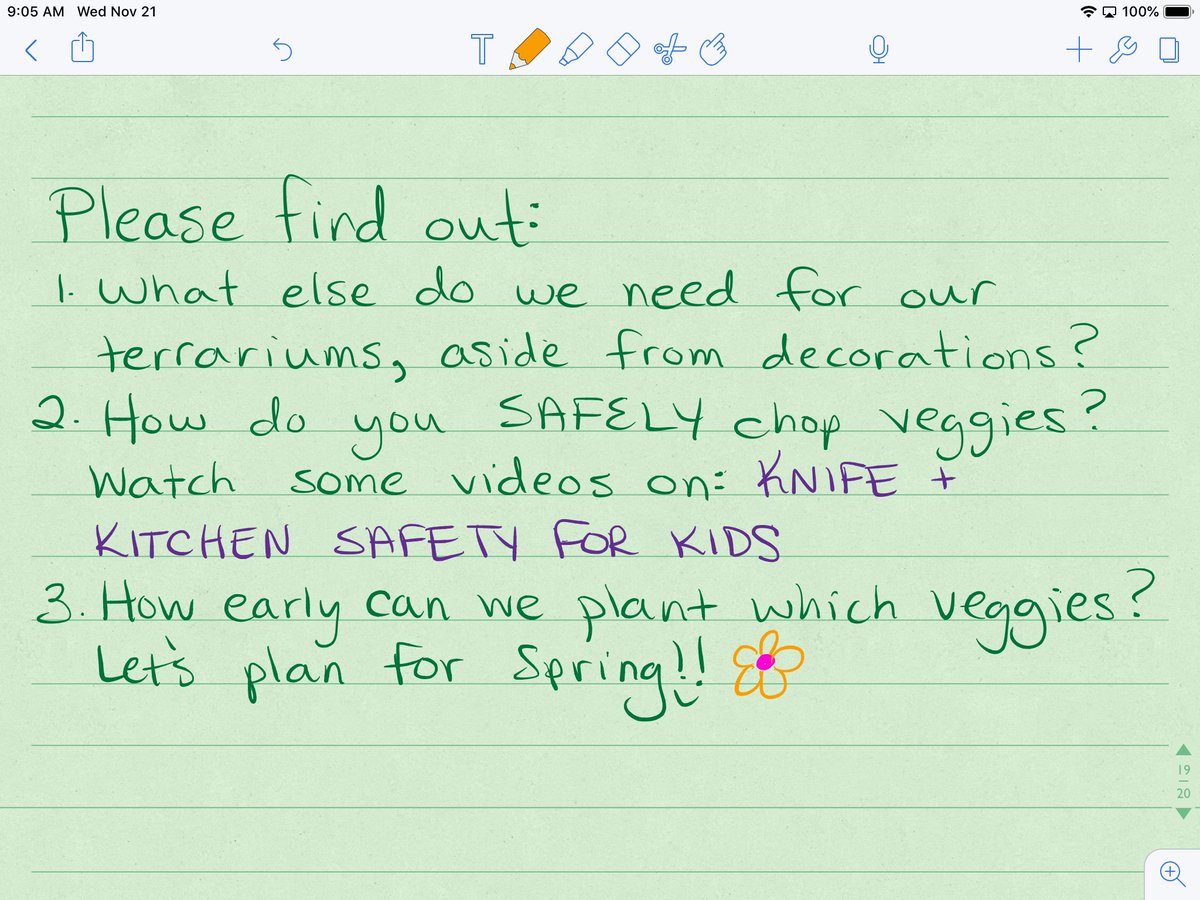 9:05 AM Wed Nov 21
100%
T
Please find out:
1. What else do we need for our
terrariums, aside from decorations?
2. How do you SAFELY chop veggies?
Watch some videos on: KNIFE +
KITCHEN SAFETY FOR KIDS
3. How early can we plant which veggies?
Let's plan for Spring!!
19
20